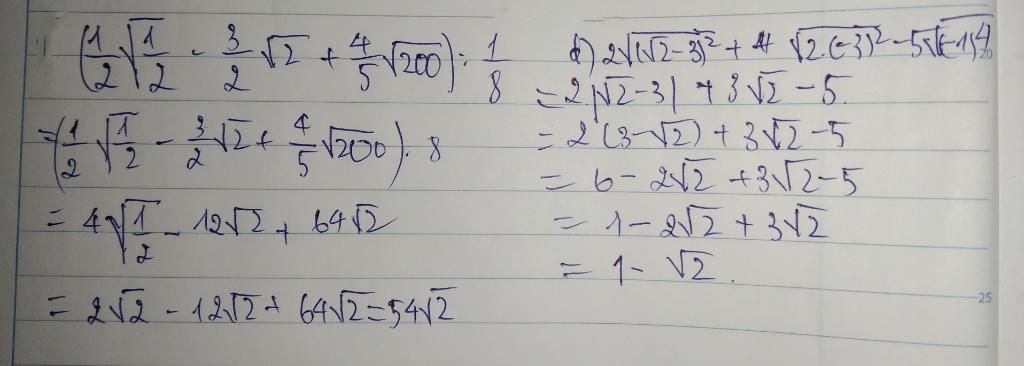 (1/2 √(1/2) - 3/2 √2 + 4/5 √200) : 1/8
= (1/2 √(1/2) - 3/2 √2 + 4/5 √200) . 8
= 4√(1/2) - 12√2 + 64√2
= 2√2 - 12√2 + 64√2 = 54√2
d) 2√((√2-3)²) + √(2.(-3)²) - 5√((-1)⁴)
= 2|√2-3| + 3√2 - 5.
= 2(3-√2) + 3√2 - 5
= 6 - 2√2 + 3√2 - 5
= 1 - 2√2 + 3√2
= 1 - √2.
20
25